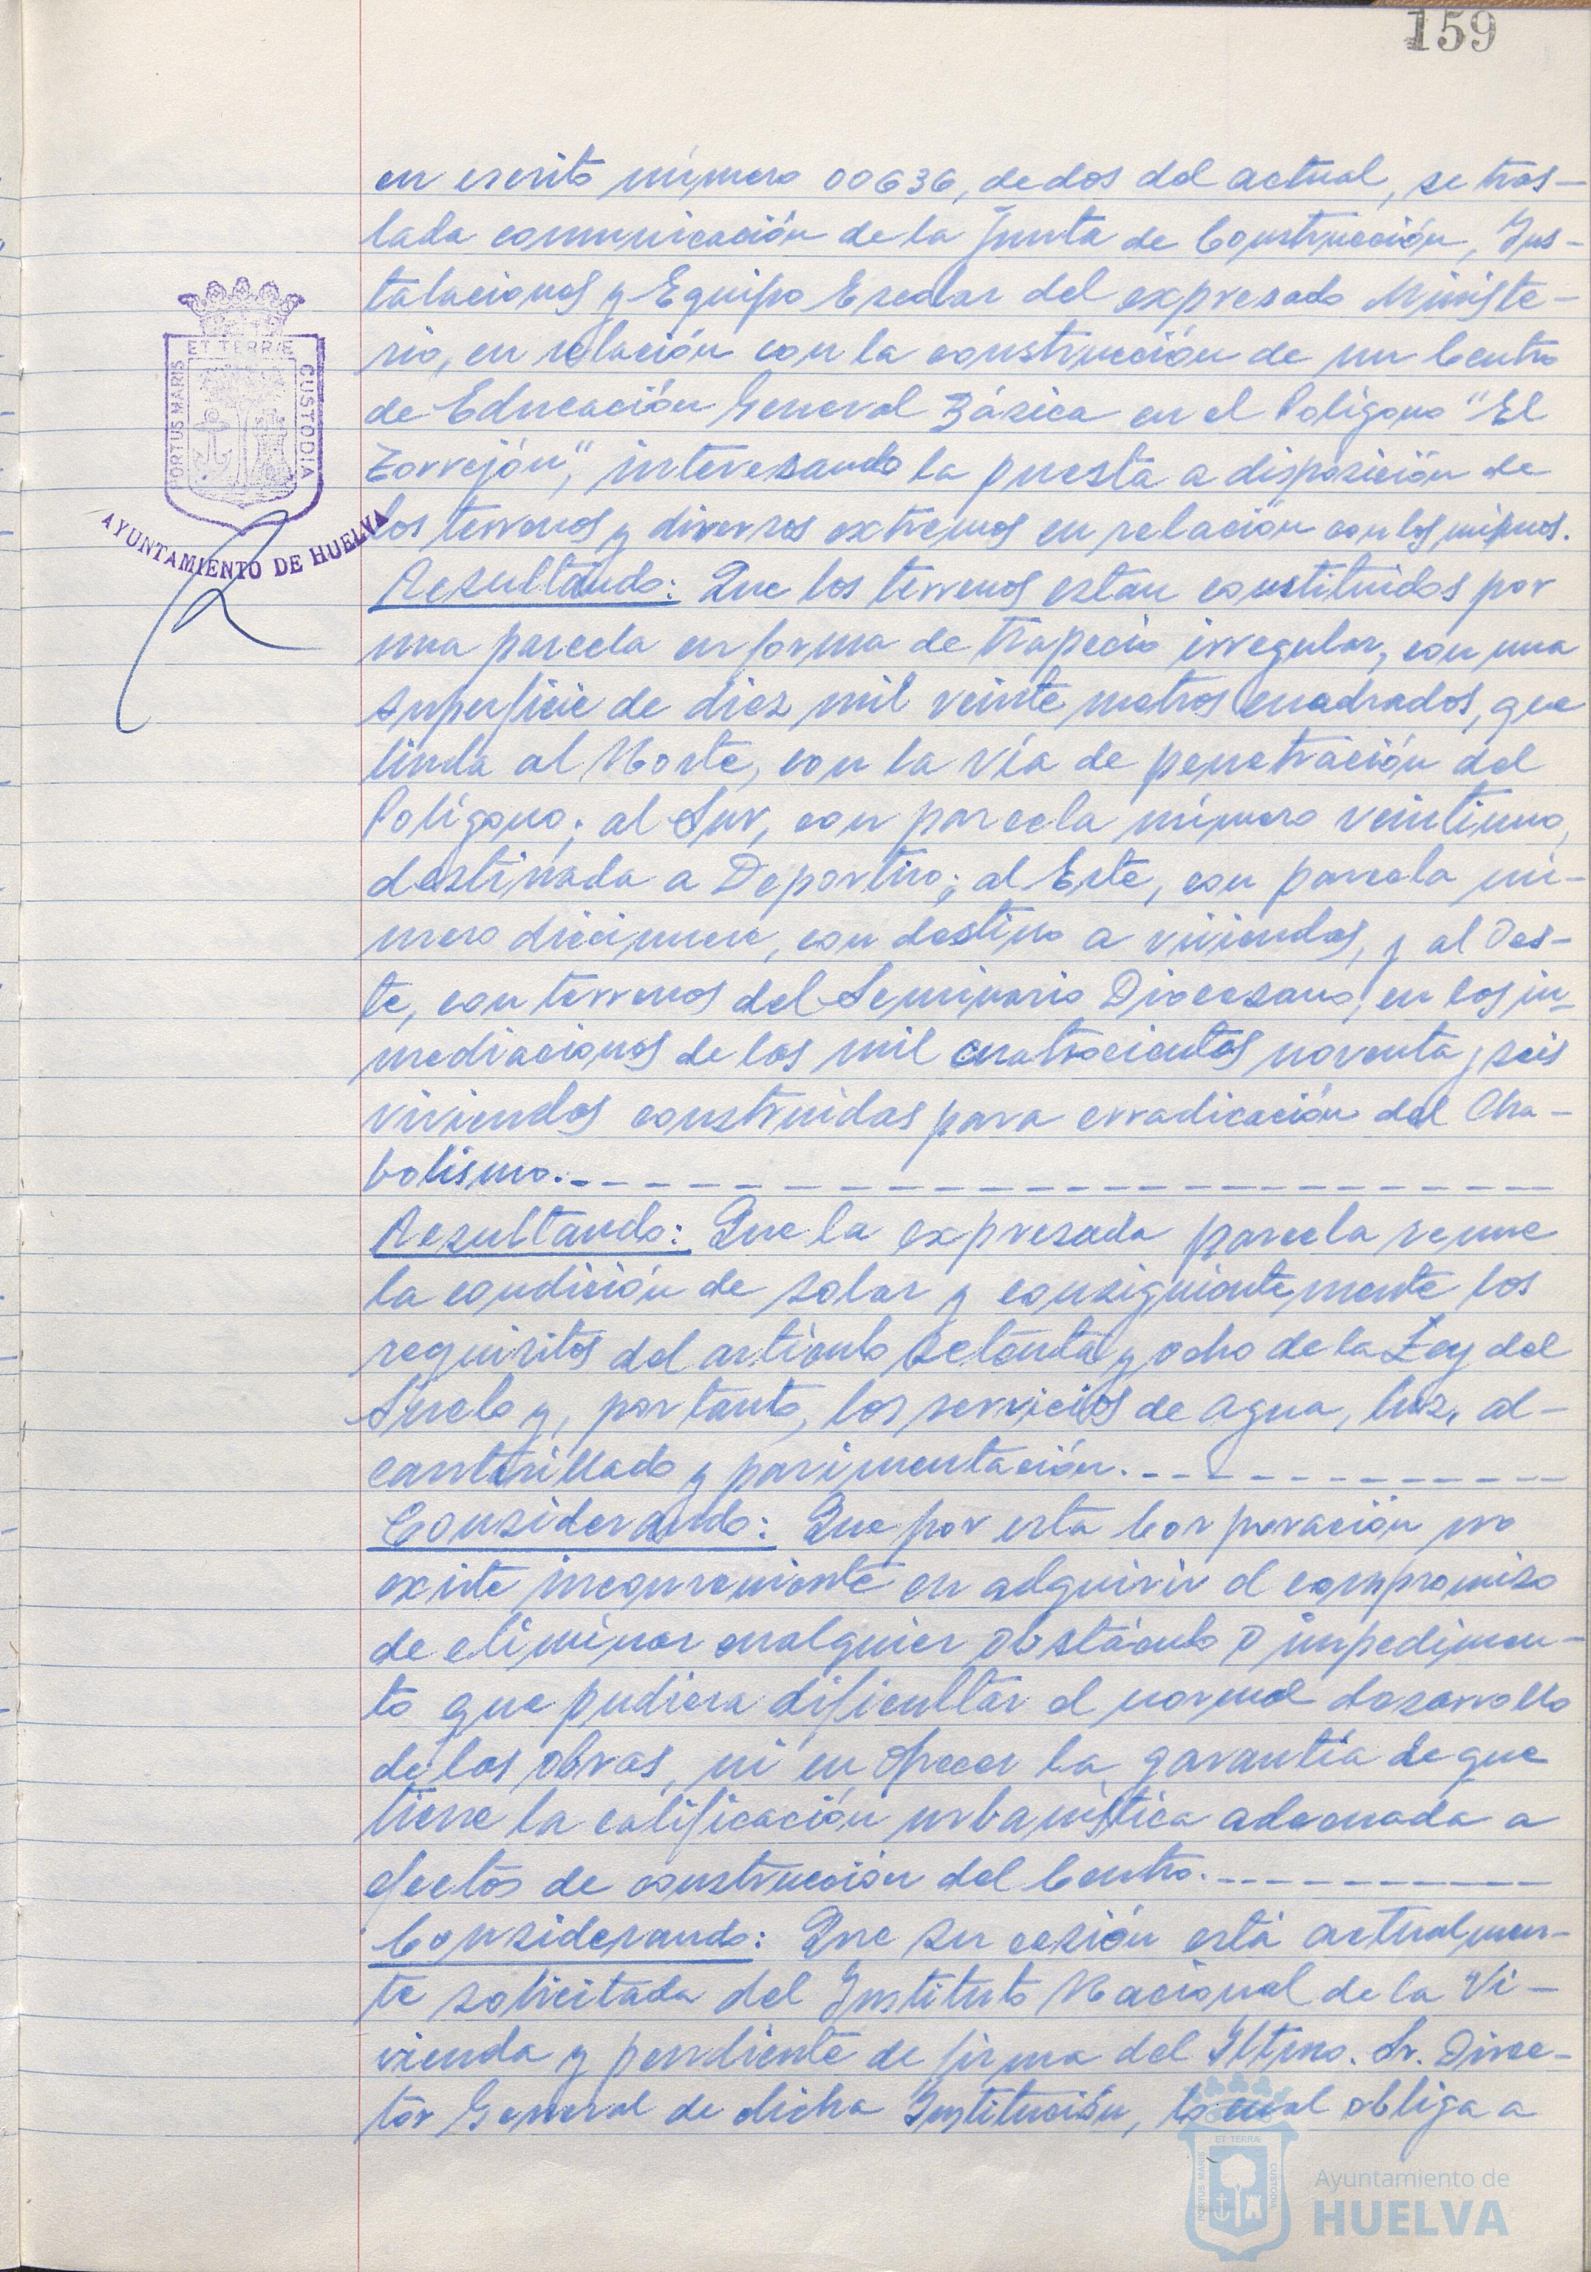 159
en escrito número 00636, de dos del actual, se tras-
lada comunicación de la Junta de Construcción, Ins-
talaciones y Equipo Escolar del expresado Ministe-
rio, en relación con la construcción de un Centro
de Educación General Básica en el Polígono "El
Torrejón", interesando la puesta a disposición de
los terrenos y diversos extremos en relación con los mismos.
Resultando: Que los terrenos estan constituidos por
una parcela en forma de trapecio irregular, con una
superficie de diez mil veinte metros cuadrados, que
linda al Norte, con la vía de penetración del
Polígono; al Sur, con parcela número veintiuno,
destinada a Deportivo; al Este, con parcela nú-
mero diecinueve, con destino a viviendas, y al Oes-
te, con terrenos del Seminario Diocesano, en las in-
mediaciones de las mil cuatrocientas noventa y seis
viviendas construidas para erradicación del Cha-
bolismo.
Resultando: Que la expresada parcela reune
la condición de solar y consiguientemente los
requisitos del artículo setenta y ocho de la Ley del
Suelo y, por tanto, los servicios de agua, luz, al-
cantarillado y pavimentación.
Considerando: Que por esta Corporación no
existe inconveniente en adquirir el compromiso
de eliminar cualquier obstáculo o impedimen-
to que pudiera dificultar el normal desarrollo
de las obras, ni en ofrecer la garantía de que
tiene la calificación urbanística adecuada a
efectos de construcción del Centro.
Considerando: Que su cesión está actualmen-
te solicitada del Instituto Nacional de la Vi-
vienda y pendiente de firma del Iltmo. Sr. Direc-
tor General de dicha Institución, lo cual obliga a
PORTUS MARIS ET TERRÆ CUSTODIA
AYUNTAMIENTO DE HUELVA
PORTUS MARIS ET TERRÆ CUSTODIA
Ayuntamiento de
HUELVA